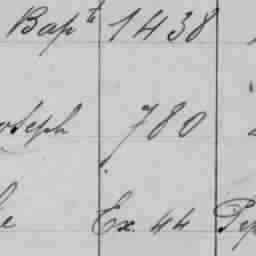 Bapte 1438
oseph 780
Ex. 44